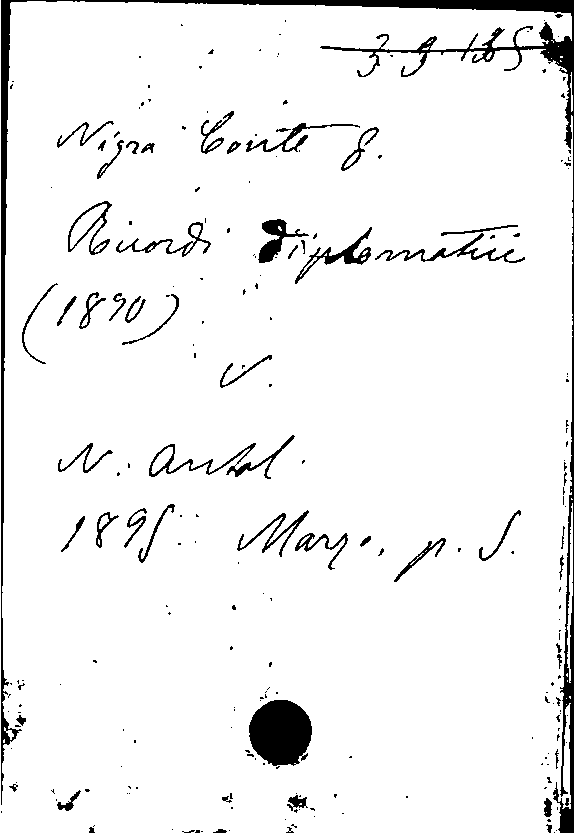 3. 9. 185
Nigra Conte C.
Ricordi diplomatici
(1870)
V.
N. Antol.
1895. Marzo, p. 5.